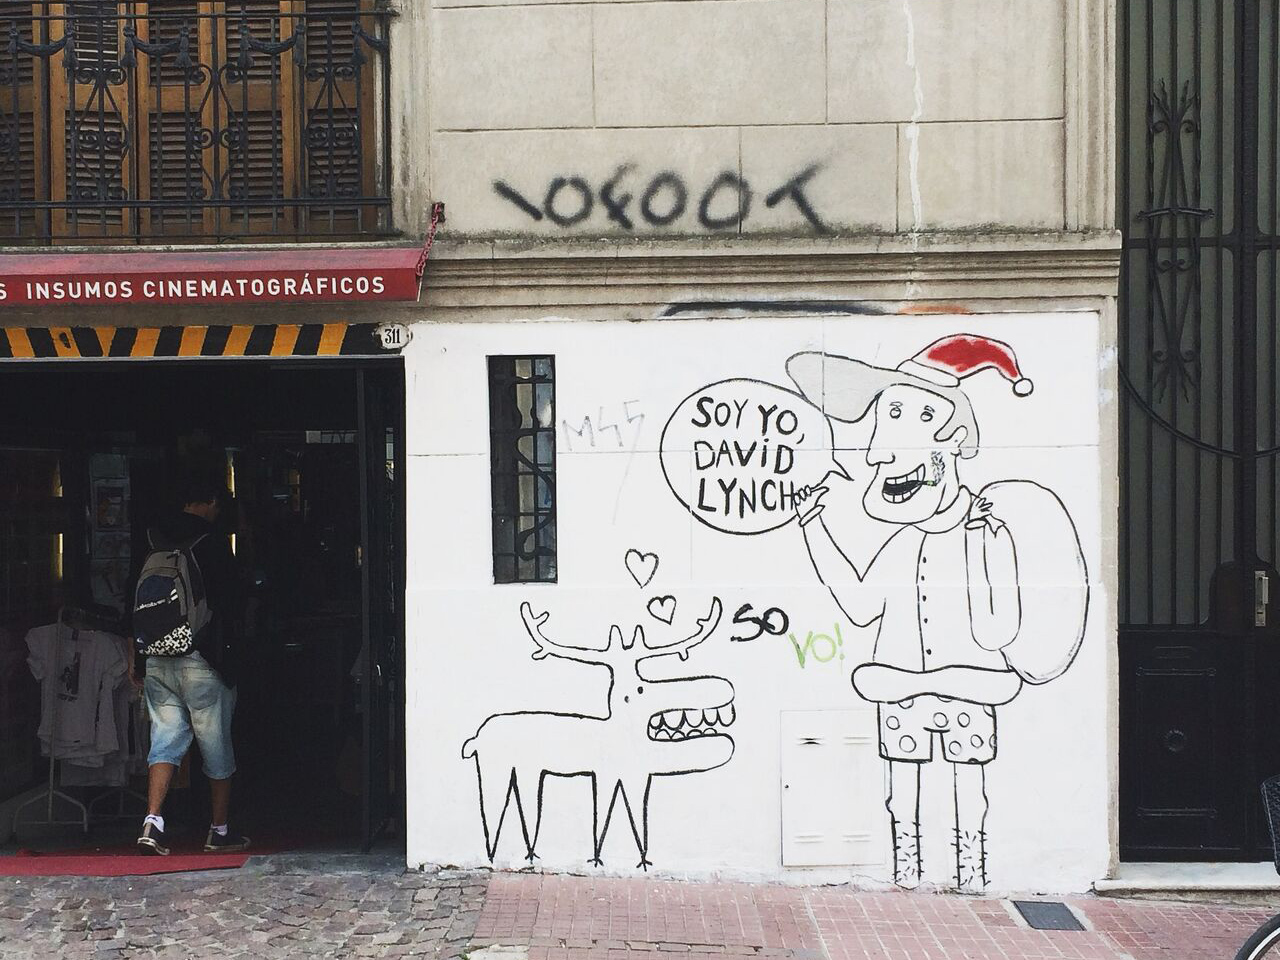 S INSUMOS CINEMATOGRÁFICOS
311
SOY YO,
DAVID
LYNCH
SO
VO!